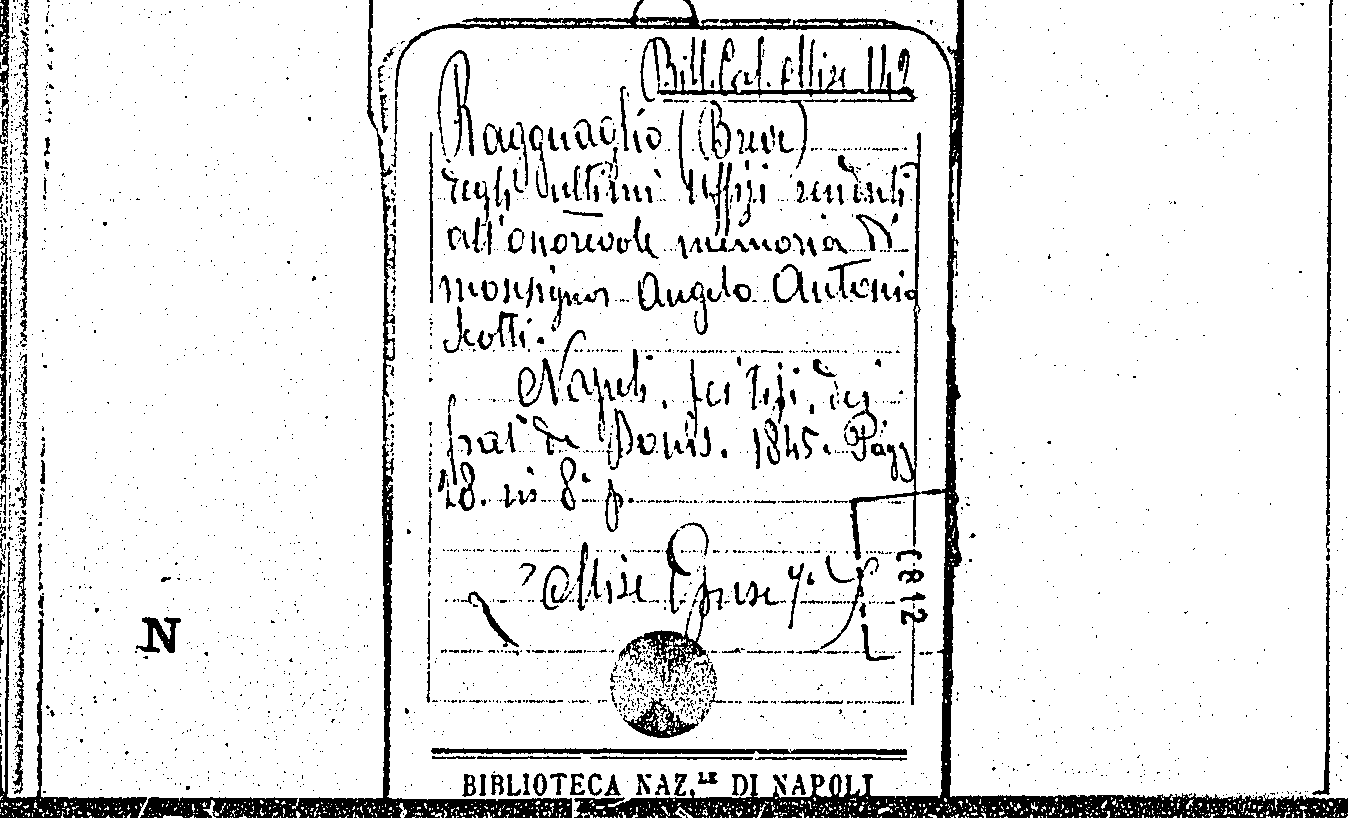 Bill. Cal. Mise 142
Ragguaglio (Breve)
degli ultimi uffizi renduti
all'onorevole memoria di
monsignor Angelo Antonio
Scotti.
Napoli, pei tipi dei
frat. de Bonis. 1845. Pagg
18. in 8° p.
Mise
C812
N
BIBLIOTECA NAZ.LE DI NAPOLI